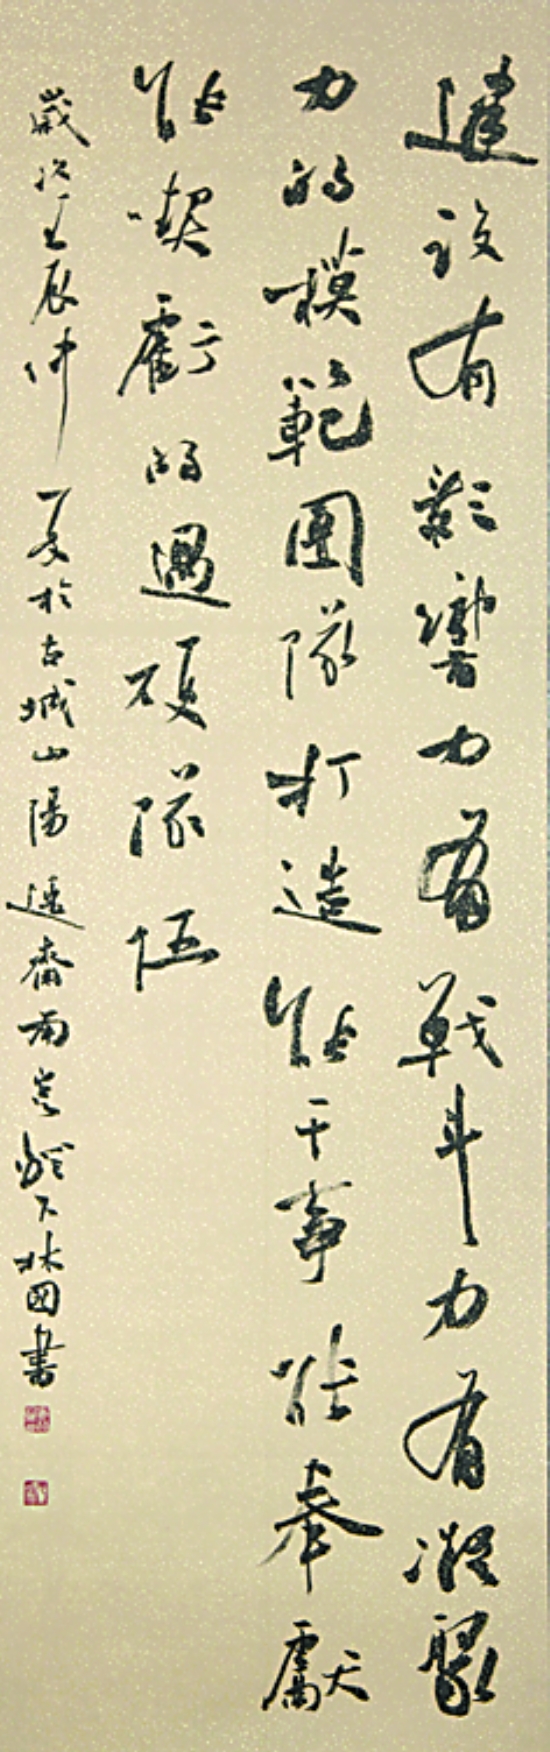 建设有影響力有戰斗力有凝聚
力的模範團隊打造能干事能奉獻
能喫虧的過硬隊伍
歲次壬辰仲夏於古城山陽逸齋南窓下林國書